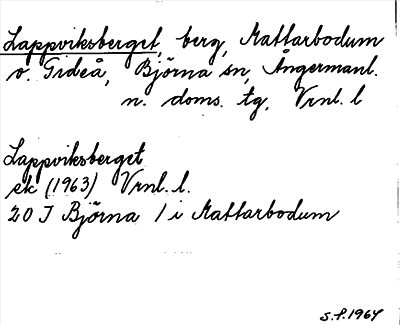 Lappviksberget, berg, Mattarbodum
o. Gideå, Björna sn, Ångermanl.
n. doms. tg. Vrnl. l
Lappviksberget
ek (1963) Vrnl. l.
20 J Björna 1 i Mattarbodum
S.P. 1964